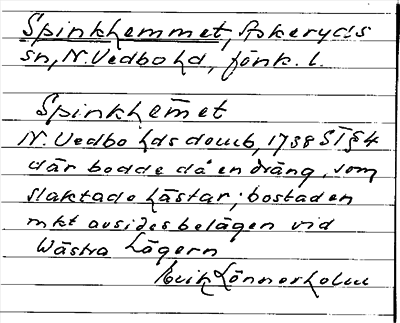 Spinkhemmet, Askeryds
sn, N. Vedbo hd, Jönk. l.
Spinkhem̄et
N. Vedbo hds domb, 1738 ST § 4
där bodde då en dräng, som
slaktade hästar; bostaden
mkt avsides belägen vid
Wästra Lägern
Erik Lönnerholm